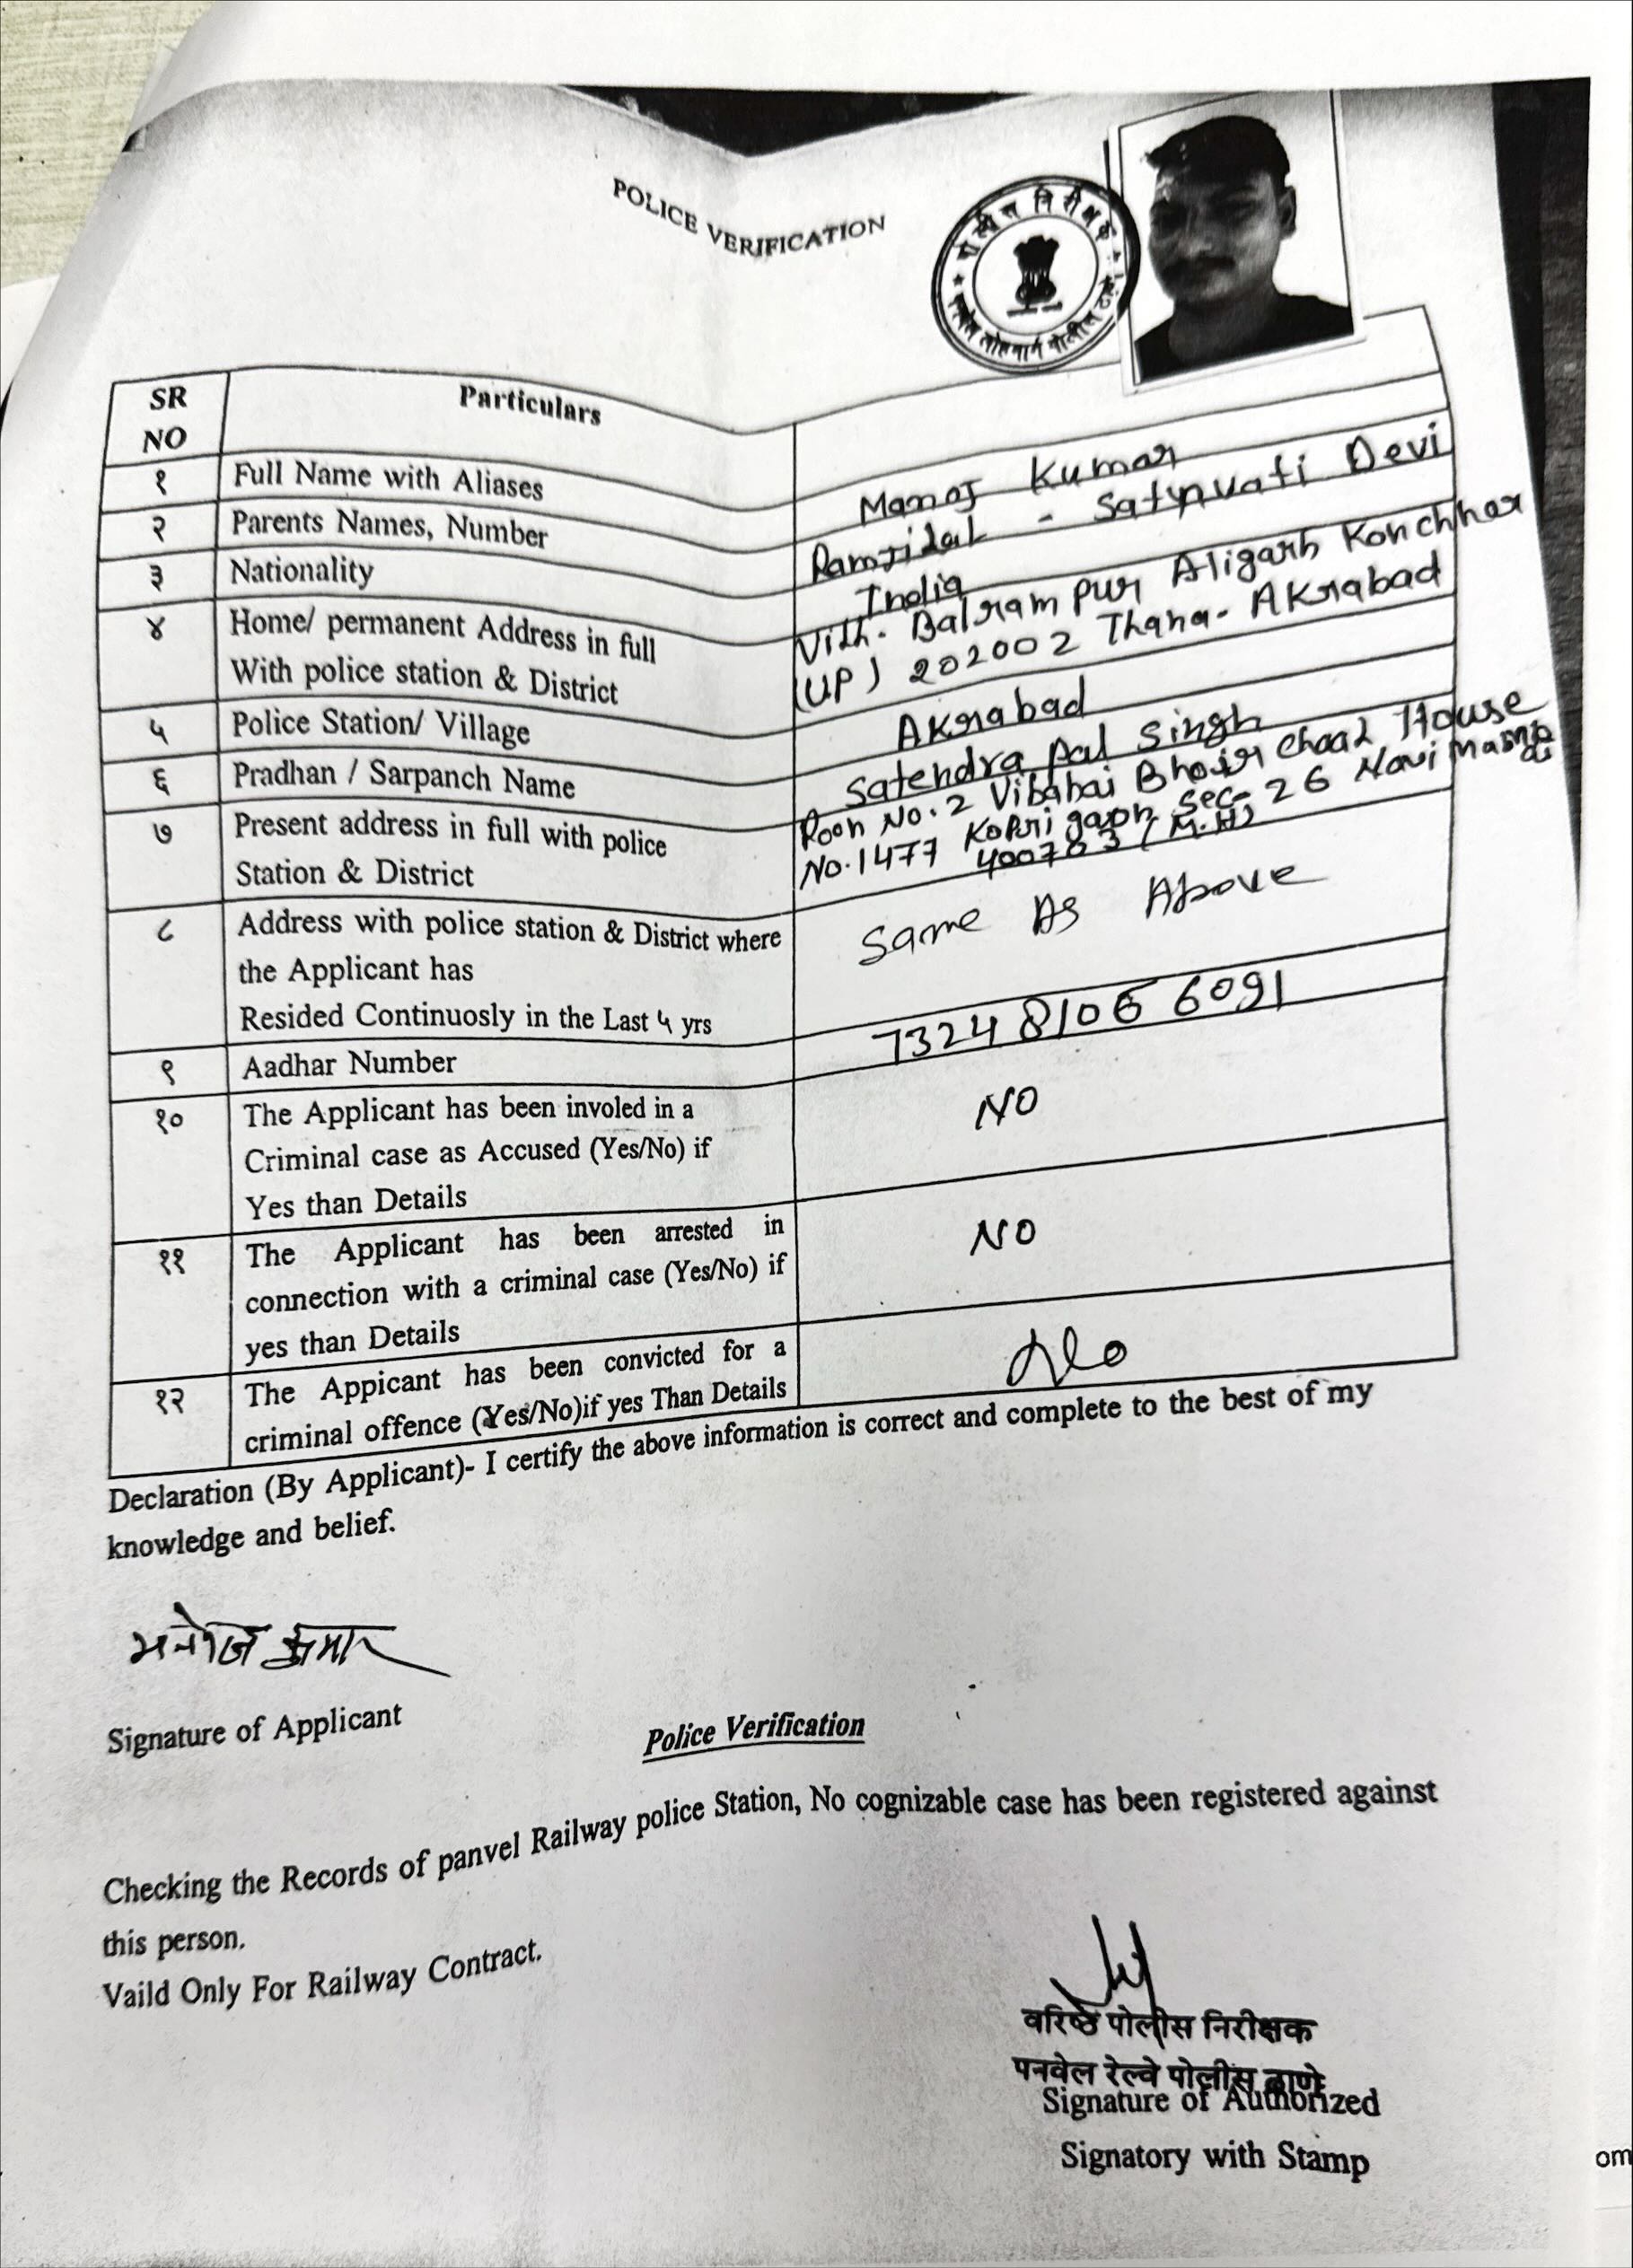 POLICE VERIFICATION
पोलीस निरीक्षक
पनवेल लोहमार्ग पोलीस ठाणे
SR NO Particulars
१ Full Name with Aliases Manoj Kumar
२ Parents Names, Number Ramjilal - Satyavati Devi
३ Nationality India
४ Home/ permanent Address in full Vill- Balram pur Aligarh Konchhor
With police station & District (UP) 202002 Thana- AKrabad
५ Police Station/ Village AKrabad
६ Pradhan / Sarpanch Name Satendra Pal Singh
७ Present address in full with police Room No.2 Vibabai Bhoir Chaal House
Station & District No.1477 Kopri gaon, Sec- 26 Navi
400703 (M.H)
८ Address with police station & District where Same As Above
the Applicant has
Resided Continuosly in the Last ५ yrs
९ Aadhar Number 7324 8106 6091
१० The Applicant has been involed in a NO
Criminal case as Accused (Yes/No) if
Yes than Details
११ The Applicant has been arrested in NO
connection with a criminal case (Yes/No) if
yes than Details
१२ The Appicant has been convicted for a No
criminal offence (Yes/No)if yes Than Details
Declaration (By Applicant)- I certify the above information is correct and complete to the best of my
knowledge and belief.
मनोज कुमार
Signature of Applicant
Police Verification
Checking the Records of panvel Railway police Station, No cognizable case has been registered against
this person.
Vaild Only For Railway Contract.
वरिष्ठ पोलीस निरीक्षक
पनवेल रेल्वे पोलीस ठाणे
Signature of Authorized
Signatory with Stamp
om